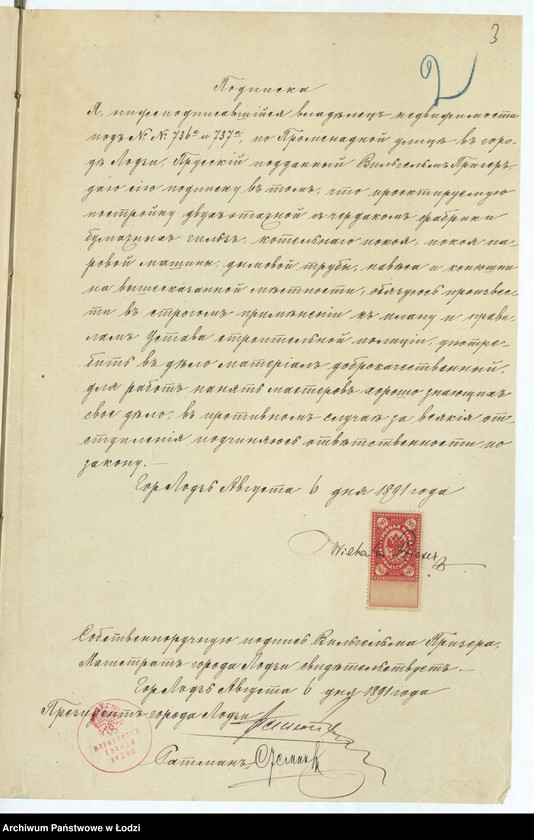 3
2
Подписка
Я, нижеподписавшійся владѣлецъ недвижимости
подъ №№ 736а и 737а, по Променадной улицѣ въ горо-
дѣ Лодзи, Прускій подданный Вильгельмъ Призеръ,
даю сію подписку въ томъ, что проектируемую
постройку двухъэтажной съ чердакомъ фабрики
бумажныхъ гильзъ, котельнаго покоя, покоя па-
ровой машины, дымовой трубы, навѣса и конюшни
на вышесказанной мѣстности, обязуюсь произвес-
ти въ строгомъ примѣненіи къ плану и прави-
ламъ Устава строительной полиціи, употре-
бить въ дѣло матеріалъ доброкачественный,
для работъ нанять мастеровъ хорошо знающихъ
свое дѣло, въ противномъ случаѣ за всякія от-
ступленія подчиняюсь отвѣтственности по
закону.—
Гор. Лодзь Августа 6 дня 1891 года
30 30
Собственноручную подпись Вильгельма Призера,
Магистратъ города Лодзи свидѣтельствуетъ.—
Гор. Лодзь Августа 6 дня 1891 года
Президентъ города Лодзи
МАГИСТРАТЪ
ГОРОДА
ЛОДЗИ
Ратманъ
Archiwum Państwowe w Łodzi